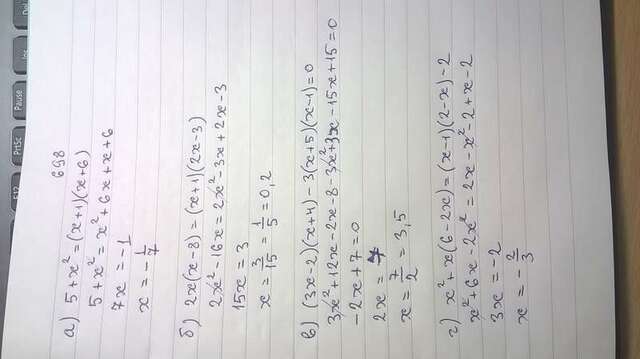 F12 PrtSc Pause Ins
698
а) 5+x²=(x+1)(x+6)
5+x²=x²+6x+x+6
7x=-1
x=-1/7
б) 2x(x-8)=(x+1)(2x-3)
2x²-16x=2x²-3x+2x-3
15x=3
x=3/15=1/5=0,2
в) (3x-2)(x+4)-3(x+5)(x-1)=0
3x²+12x-2x-8-3x²+3x-15x+15=0
-2x+7=0
2x=7
x=7/2=3,5
г) x²+x(6-2x)=(x-1)(2-x)-2
x²+6x-2x²=2x-x²-2+x-2
3x=-2
x=-2/3